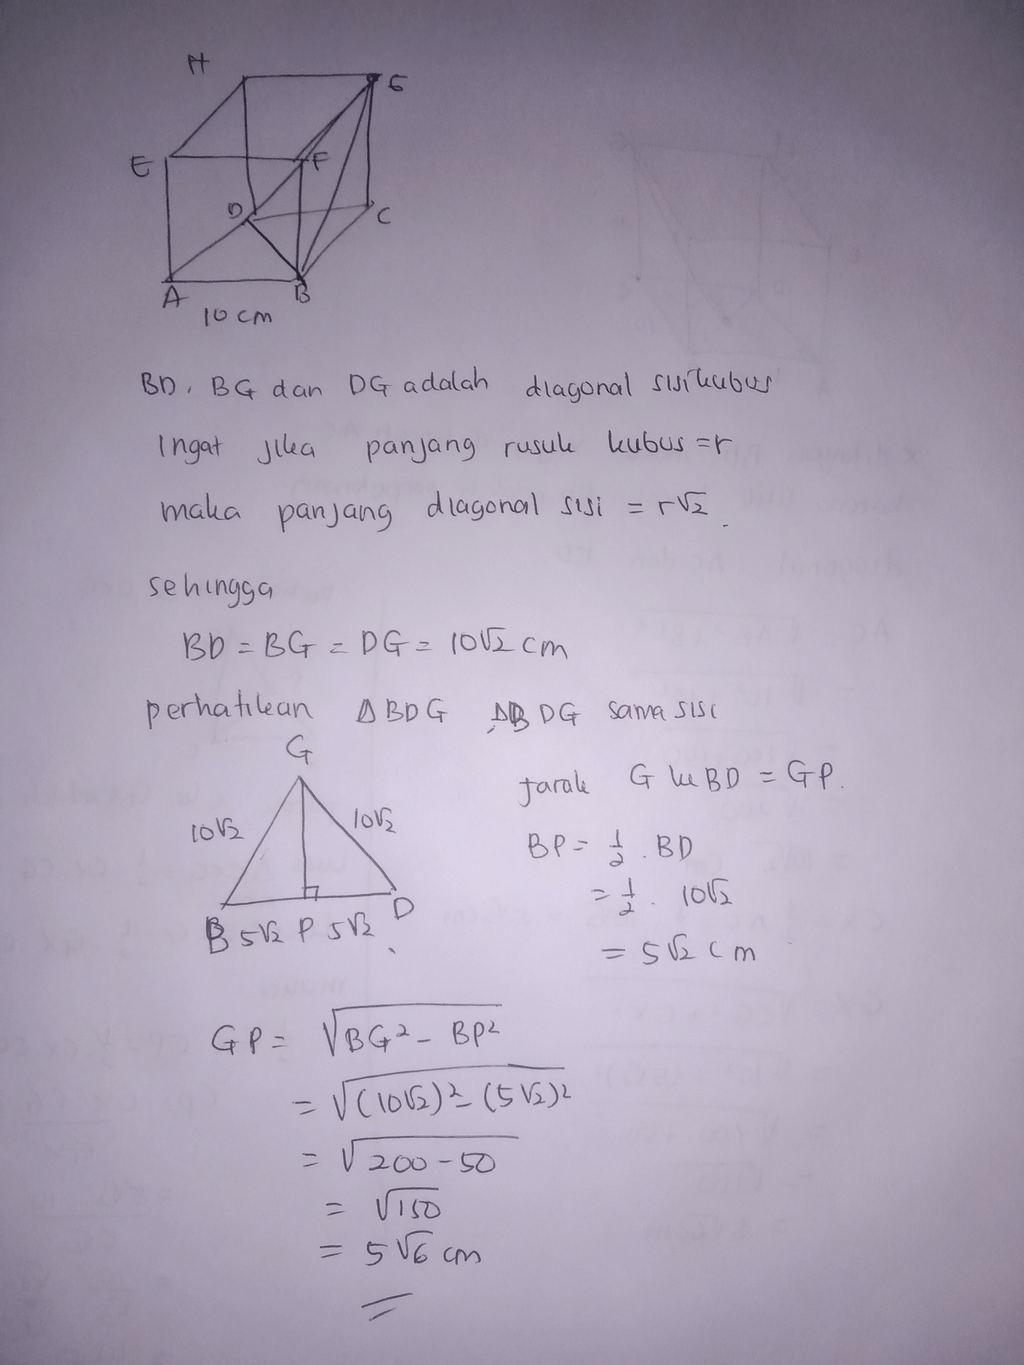 H
G
E
F
D
C
A
B
10 cm
BD, BG dan DG adalah diagonal sisi kubus
Ingat jika panjang rusuk kubus = r
maka panjang diagonal sisi = r√2.
sehingga
BD = BG = DG = 10√2 cm
perhatikan Δ BDG ΔBDG sama sisi
G
10√2 10√2
B 5√2 P 5√2 D
Jarak G ke BD = GP.
BP = 1/2 . BD
= 1/2 . 10√2
= 5√2 cm
GP = √BG² - BP²
= √(10√2)² - (5√2)²
= √200 - 50
= √150
= 5√6 cm